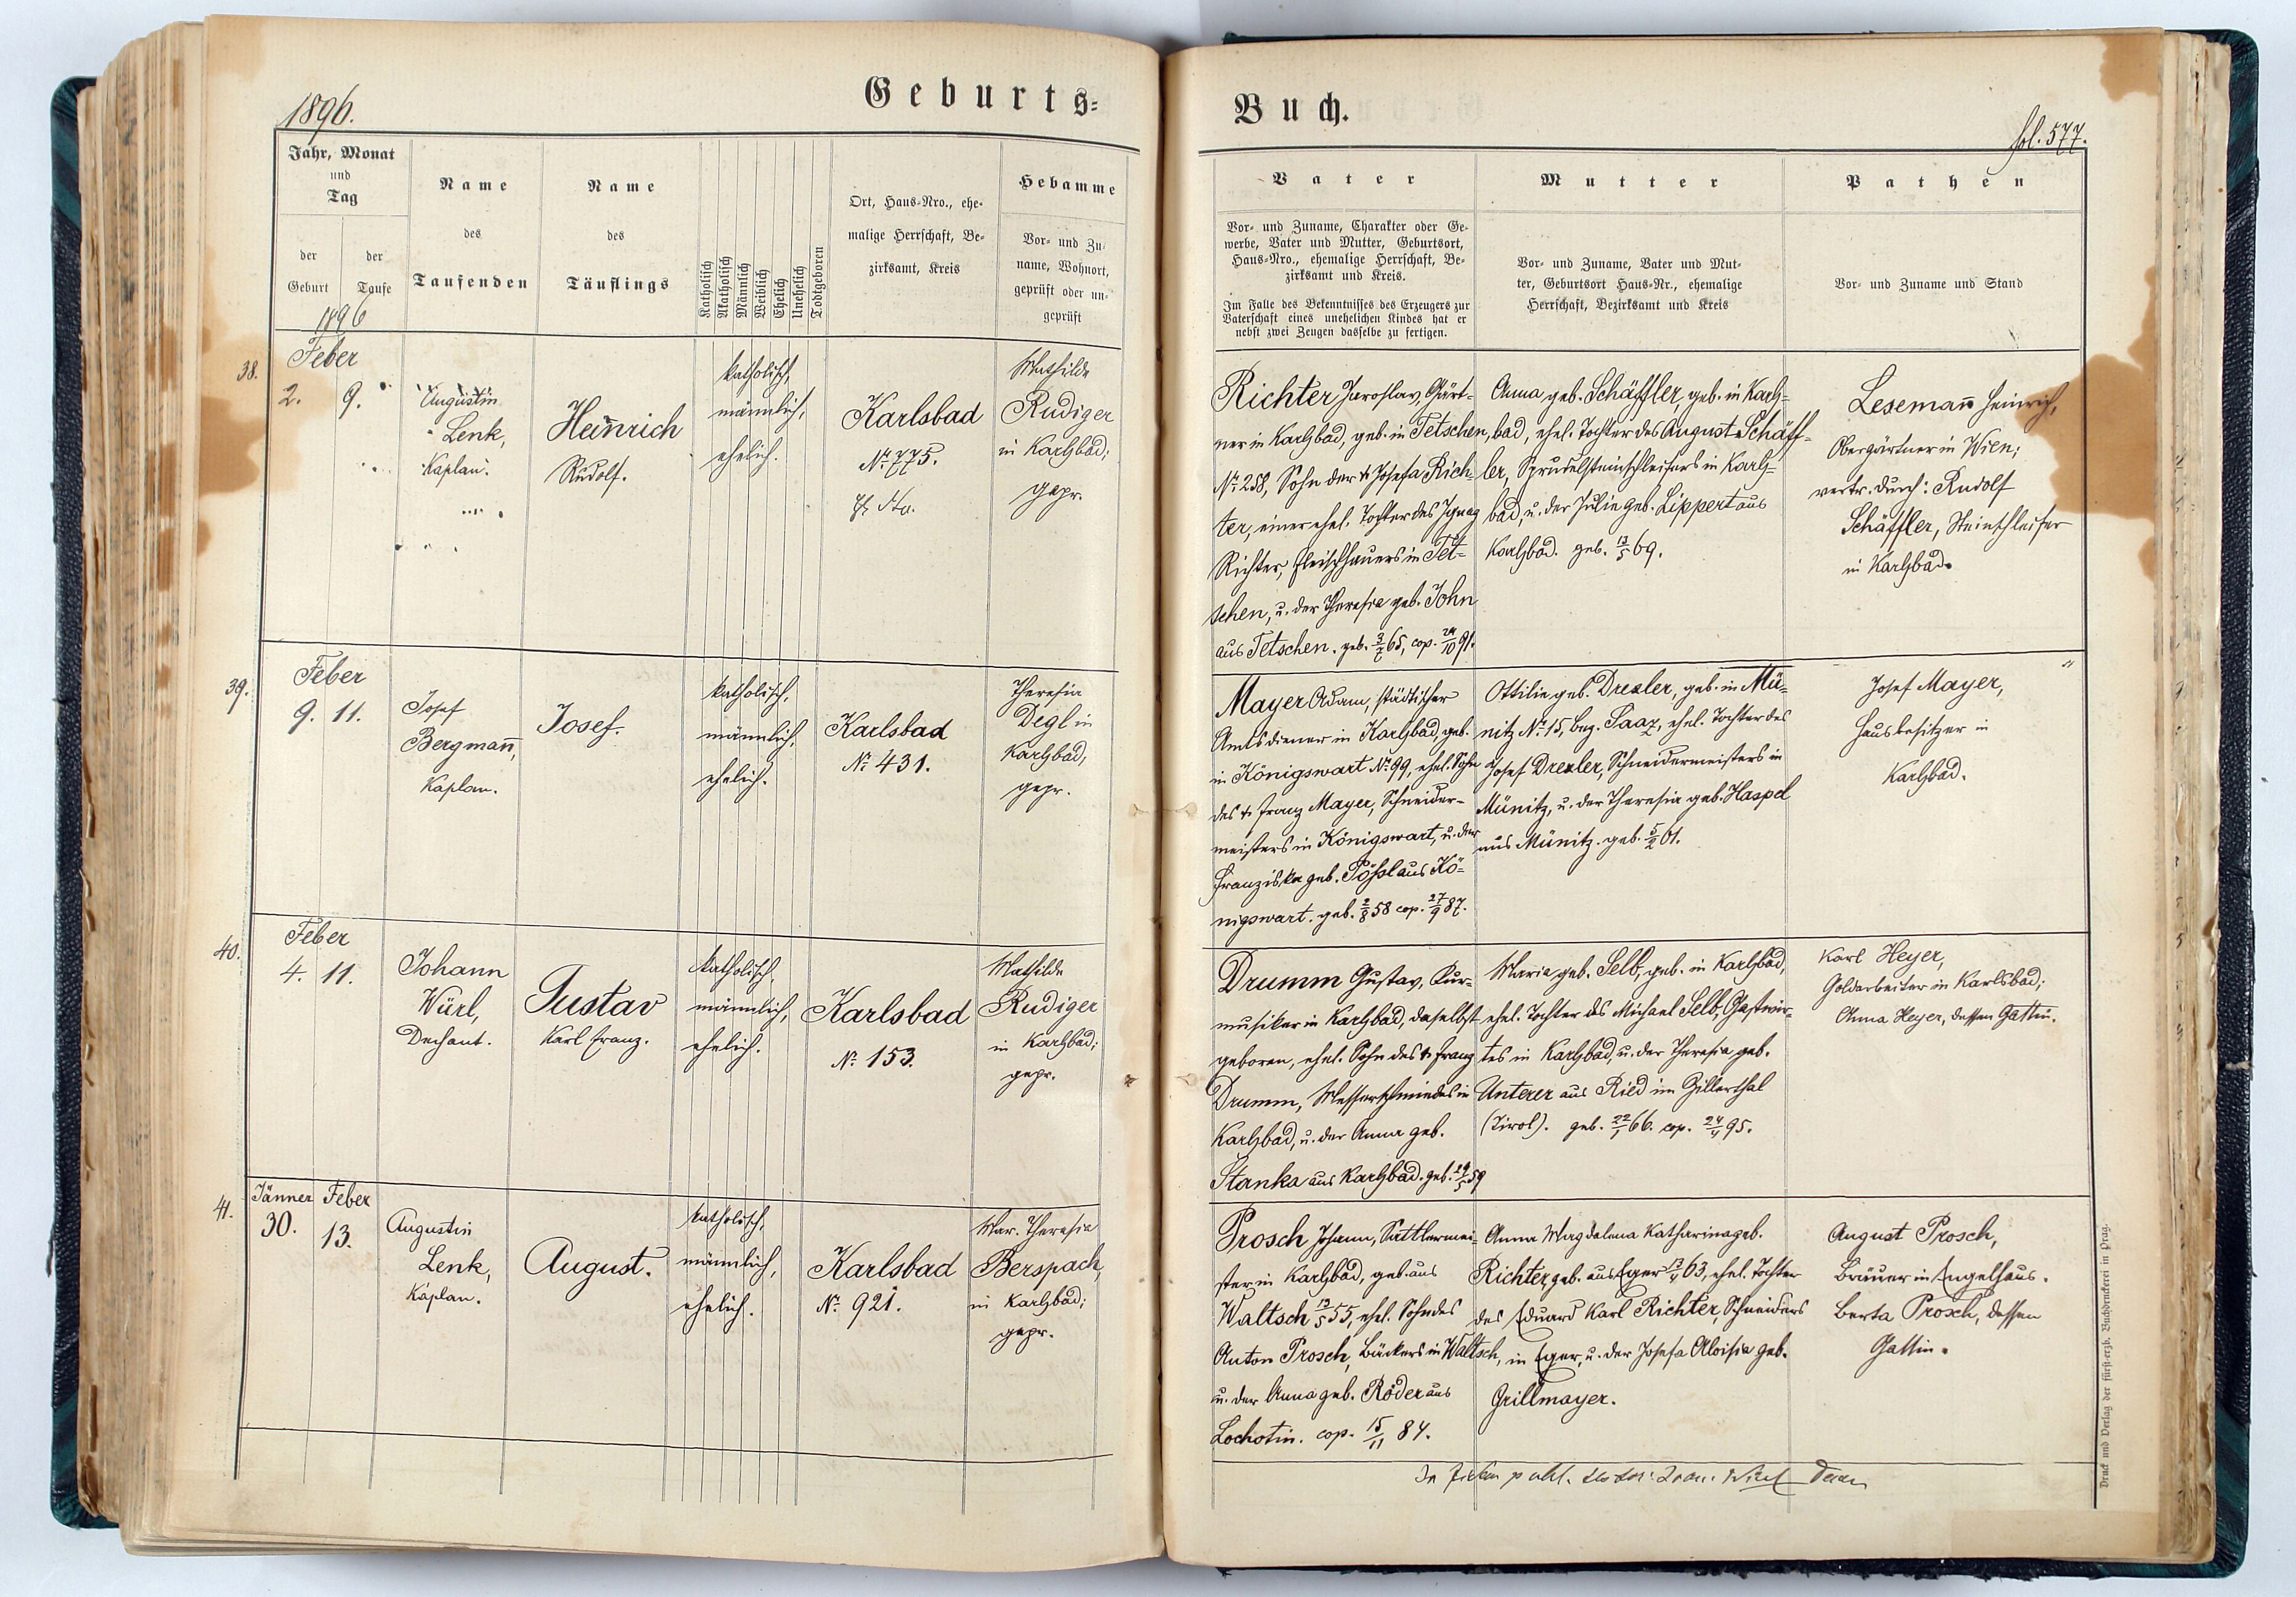 1896.
Geburts=
Jahr, Monat
und
Tag
der
Geburt
der
Taufe
1896
Name
des
Taufenden
Name
des
Täuflings
Katholisch
Akatholisch
Männlich
Weiblich
Ehelich
Unehelich
Todtgeboren
Ort, Haus-Nro., ehe-
malige Herrschaft, Be-
zirksamt, Kreis
Hebamme
Vor- und Zu-
name, Wohnort,
geprüft oder un-
geprüft
38.
Feber
2. 9.
Augustin
Lenk,
Kaplan.
Heinrich
Rudolf.
katholisch,
männlich,
ehelich.
Karlsbad
No. 775.
Mathilde
Rudiger
in Karlsbad;
gepr.
39.
Feber
9. 11.
Josef
Bergmañ,
Kaplan.
Josef.
katholisch,
männlich,
ehelich.
Karlsbad
No. 431.
Theresia
Degl in
Karlsbad,
gepr.
40.
Feber
4. 11.
Johann
Würl,
Dechant.
Gustav
Karl Franz.
katholisch,
männlich,
ehelich.
Karlsbad
No. 153.
Mathilde
Rudiger
in Karlsbad;
gepr.
41.
Jänner Feber
30. 13.
Augustin
Lenk,
Kaplan.
August.
katholisch,
männlich,
ehelich.
Karlsbad
No. 921.
Mar. Theresia
Berspach,
in Karlsbad;
gepr.
Buch.
fol. 577.
Vater
Vor- und Zuname, Charakter oder Ge-
werbe, Vater und Mutter, Geburtsort,
Haus-Nro., ehemalige Herrschaft, Be-
zirksamt und Kreis.
Im Falle des Bekenntnisses des Erzeugers zur
Vaterschaft eines unehelichen Kindes hat er
nebst zwei Zeugen dasselbe zu fertigen.
Mutter
Vor- und Zuname, Vater und Mut-
ter, Geburtsort Haus-Nr., ehemalige
Herrschaft, Bezirksamt und Kreis
Pathen
Vor- und Zuname und Stand
Richter Jaroslav, Gärt-
ner in Karlsbad, geb. in Tetschen,
No. 258, Sohn der † Josefa Rich-
ter, einer ehel. Tochter des Ignaz
Richter, Fleischhauers in Tet-
schen, u. der Theresia geb. John
aus Tetschen. geb. 3/7 65, cop. 24/10 91.
Anna geb. Schäffler, geb. in Karls-
bad, ehel. Tochter des August Schäff-
ler, Sprudelsteinschleifers in Karls-
bad, u. der Julie geb. Lippert aus
Karlsbad. geb. 13/5 69.
Lesemañ Heinrich,
Obergärtner in Wien;
vertr. durch: Rudolf
Schäffler, Steinschleifer
in Karlsbad.
Mayer Adam, städtischer
Amtsdiener in Karlsbad, geb.
in Königswart No. 99, ehel. Sohn
des † Franz Mayer, Schneider-
meisters in Königswart, u. der
Franziska geb. Pößl aus Kö-
nigswart. geb. 2/8 58 cop. 27/9 87.
Ottilie geb. Drexler, geb. in Mü-
nitz No. 15, bez. Saaz, ehel. Tochter des
Josef Drexler, Schneidermeisters in
Münitz, u. der Theresia geb. Haspel
aus Münitz. geb. 5/2 61.
Josef Mayer,
Hausbesitzer in
Karlsbad.
Drumm Gustav, Kur-
musiker in Karlsbad, daselbst
geboren, ehel. Sohn des † Franz
Drumm, Messerschmiedes in
Karlsbad, u. der Anna geb.
Stanka aus Karlsbad. geb. 29/5 59
Maria geb. Selb, geb. in Karlsbad,
ehel. Tochter des Michael Selb, Gastwir-
tes in Karlsbad, u. der Theresia geb.
Unterer aus Ried im Zillerthal
(Tirol). geb. 22/1 66. cop. 24/4 95.
Karl Heyer,
Goldarbeiter in Karlsbad;
Anna Heyer, dessen Gattin.
Prosch Johann, Sattlermei-
ster in Karlsbad, geb. aus
Waltsch 13/5 55, ehel. Sohn des
Anton Prosch, Bäckers in Waltsch,
u. der Anna geb. Röder aus
Lochotin. cop. 15/11 84.
Anna Magdalena Katharina geb.
Richter, geb. aus Eger 13/4 63, ehel. Tochter
des Eduard Karl Richter, Schneiders
in Eger, u. der Josefa Aloisia geb.
Grillmayer.
August Prosch,
Bräuer in Engelhaus.
Berta Prosch, dessen
Gattin.
Druck und Verlag der fürst-erzb. Buchdruckerei in Prag.